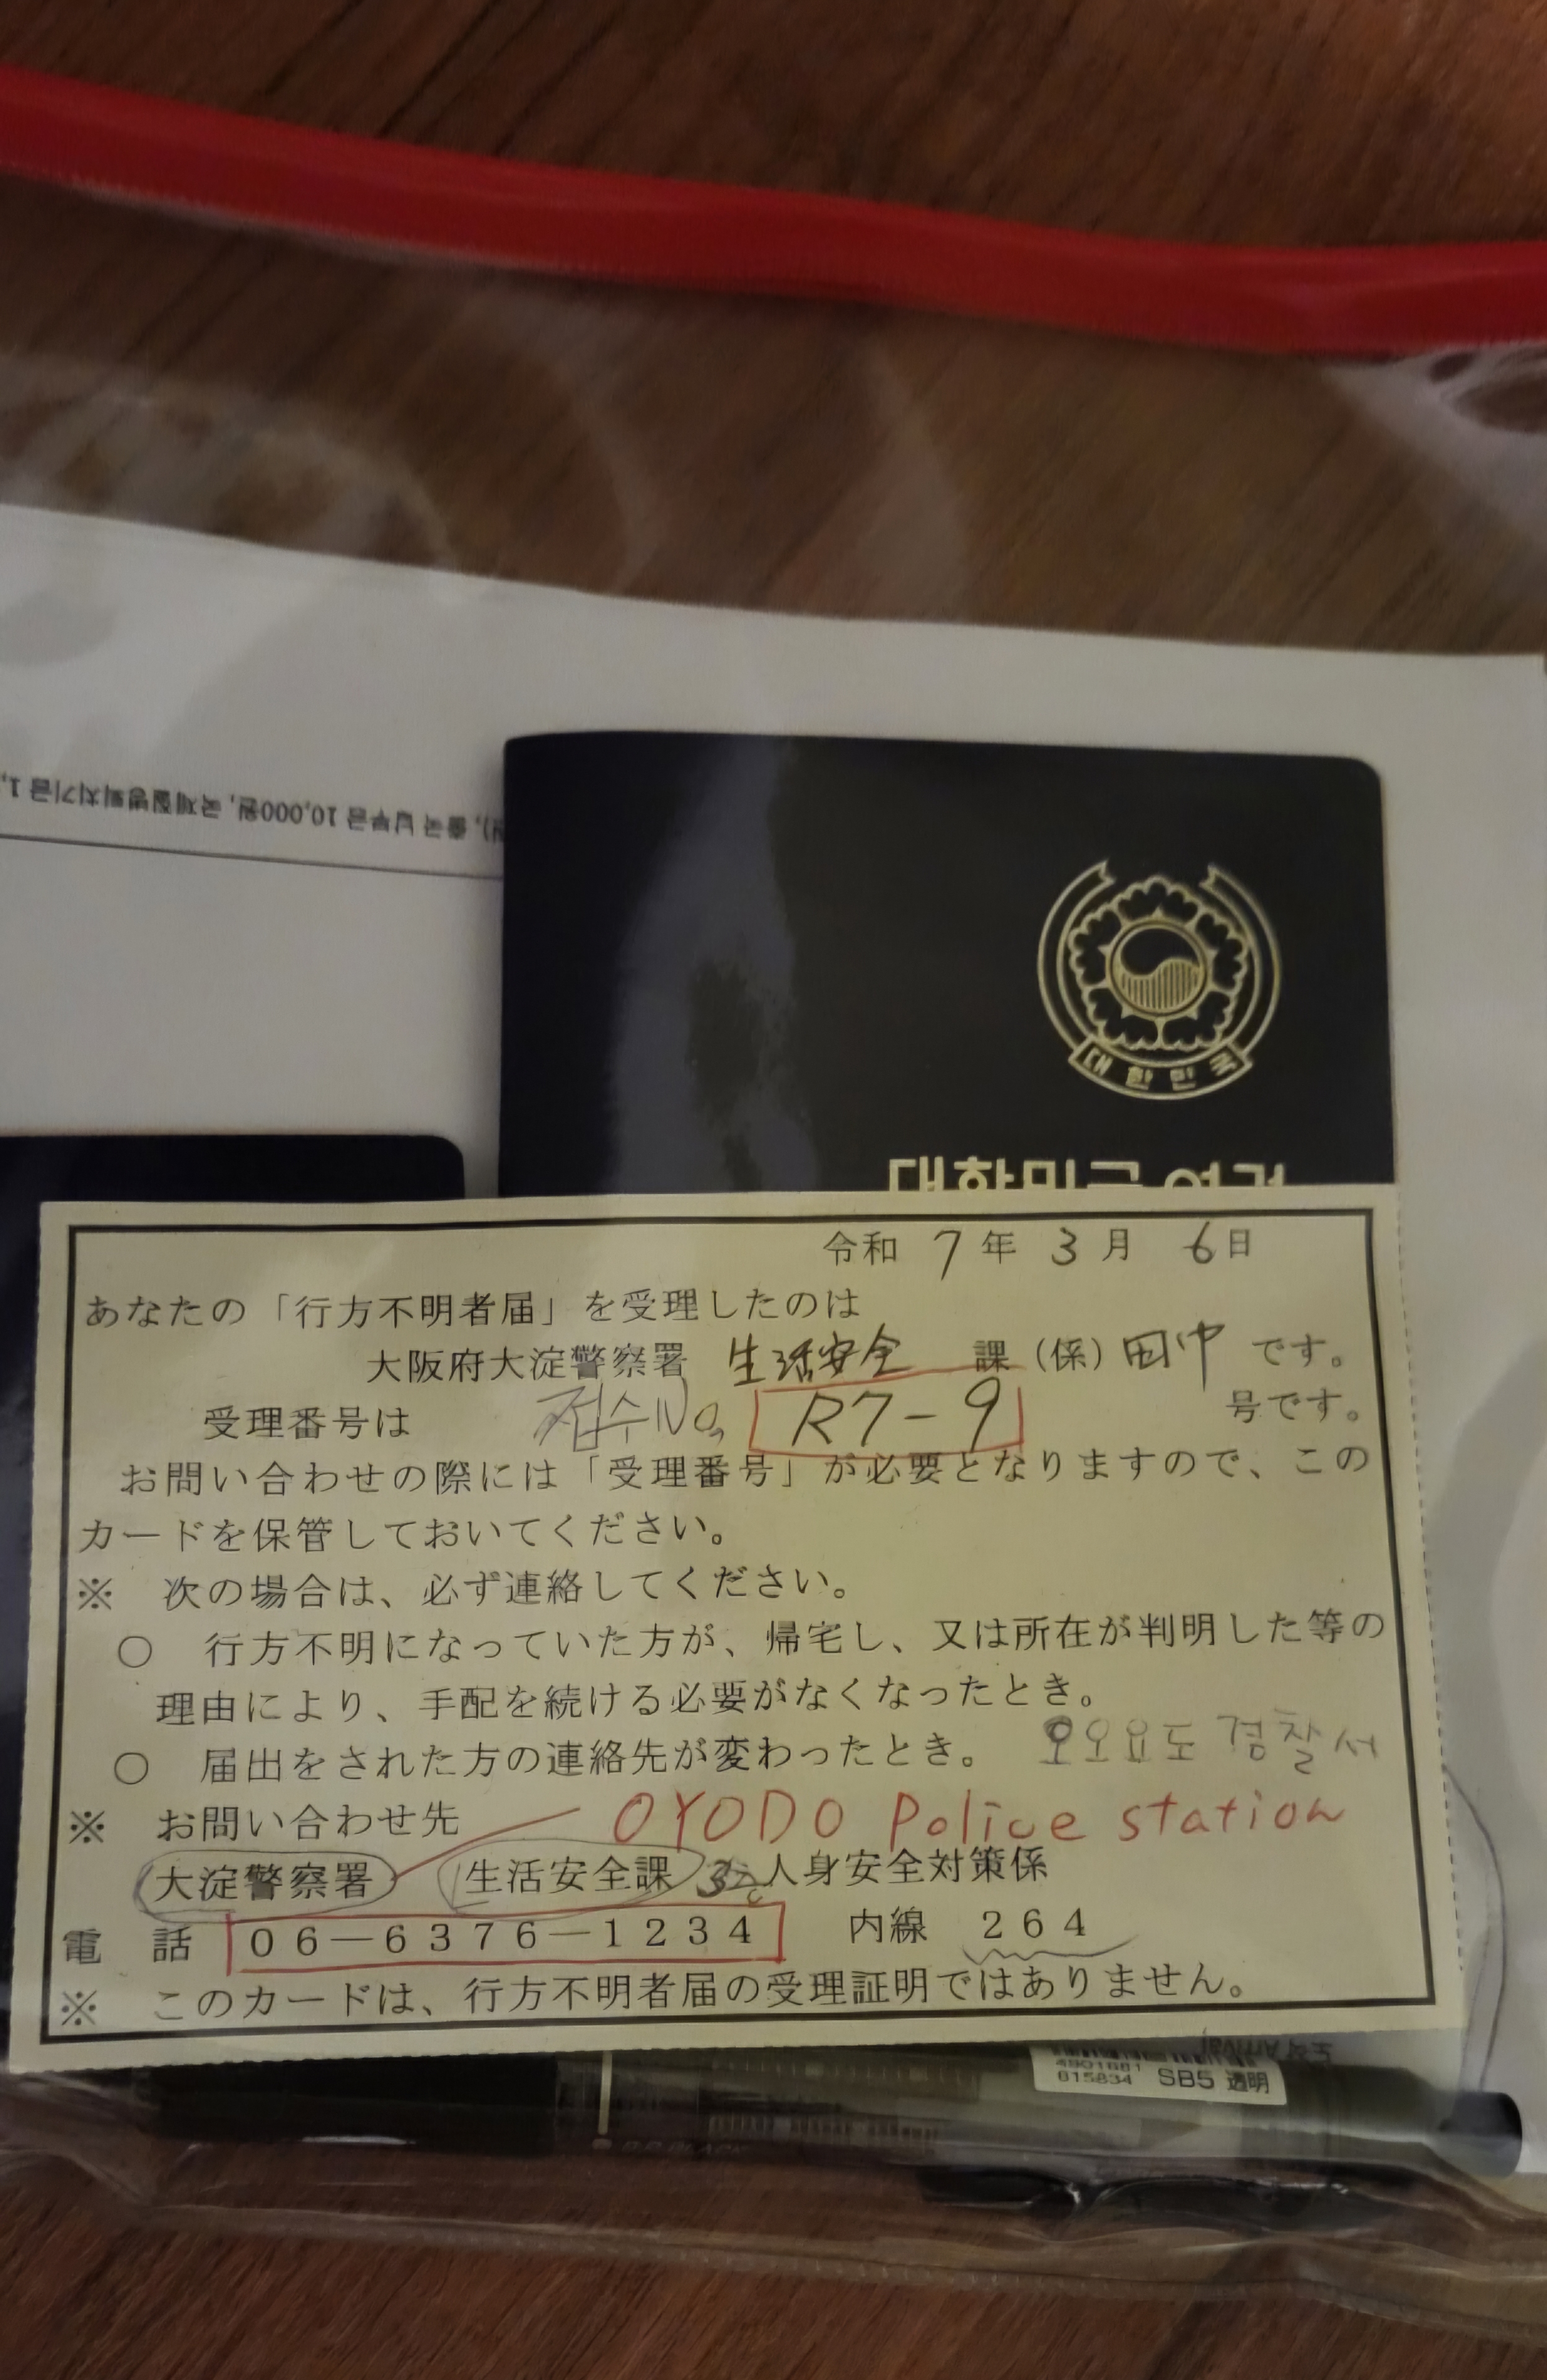 출국 납부금 10,000원, 국제질병퇴치기금 1,
대한민국
대한민국 여권
令和 7 年 3 月 6 日
あなたの「行方不明者届」を受理したのは
大阪府大淀警察署 生活安全 課（係）田中 です。
受理番号は 접수No, R7-9 号です。
お問い合わせの際には「受理番号」が必要となりますので、この
カードを保管しておいてください。
※ 次の場合は、必ず連絡してください。
○ 行方不明になっていた方が、帰宅し、又は所在が判明した等の
理由により、手配を続ける必要がなくなったとき。
○ 届出をされた方の連絡先が変わったとき。
오오요도 경찰서
※ お問い合わせ先 OYODO Police station
大淀警察署 生活安全課 人身安全対策係
電 話 06―6376―1234 内線 264
※ このカードは、行方不明者届の受理証明ではありません。
도착 Arrival
4901681
615834 SB5 透明